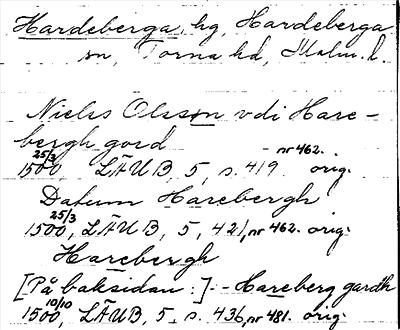 Hardeberga, hg, Hardeberga
sn, Torna hd, Malm. l.
Nielss Olsson vdi Hare-
bergh gord
25/3 1500, LÄUB, 5, s. 419. nr 462. orig.
Datum Harebergh
25/3 1500, LÄUB, 5, 421, nr 462. orig.
Harebergh
[På baksidan:] - - Hareberg gardh
10/10 1500, LÄUB, 5, s. 436, nr 481. orig.